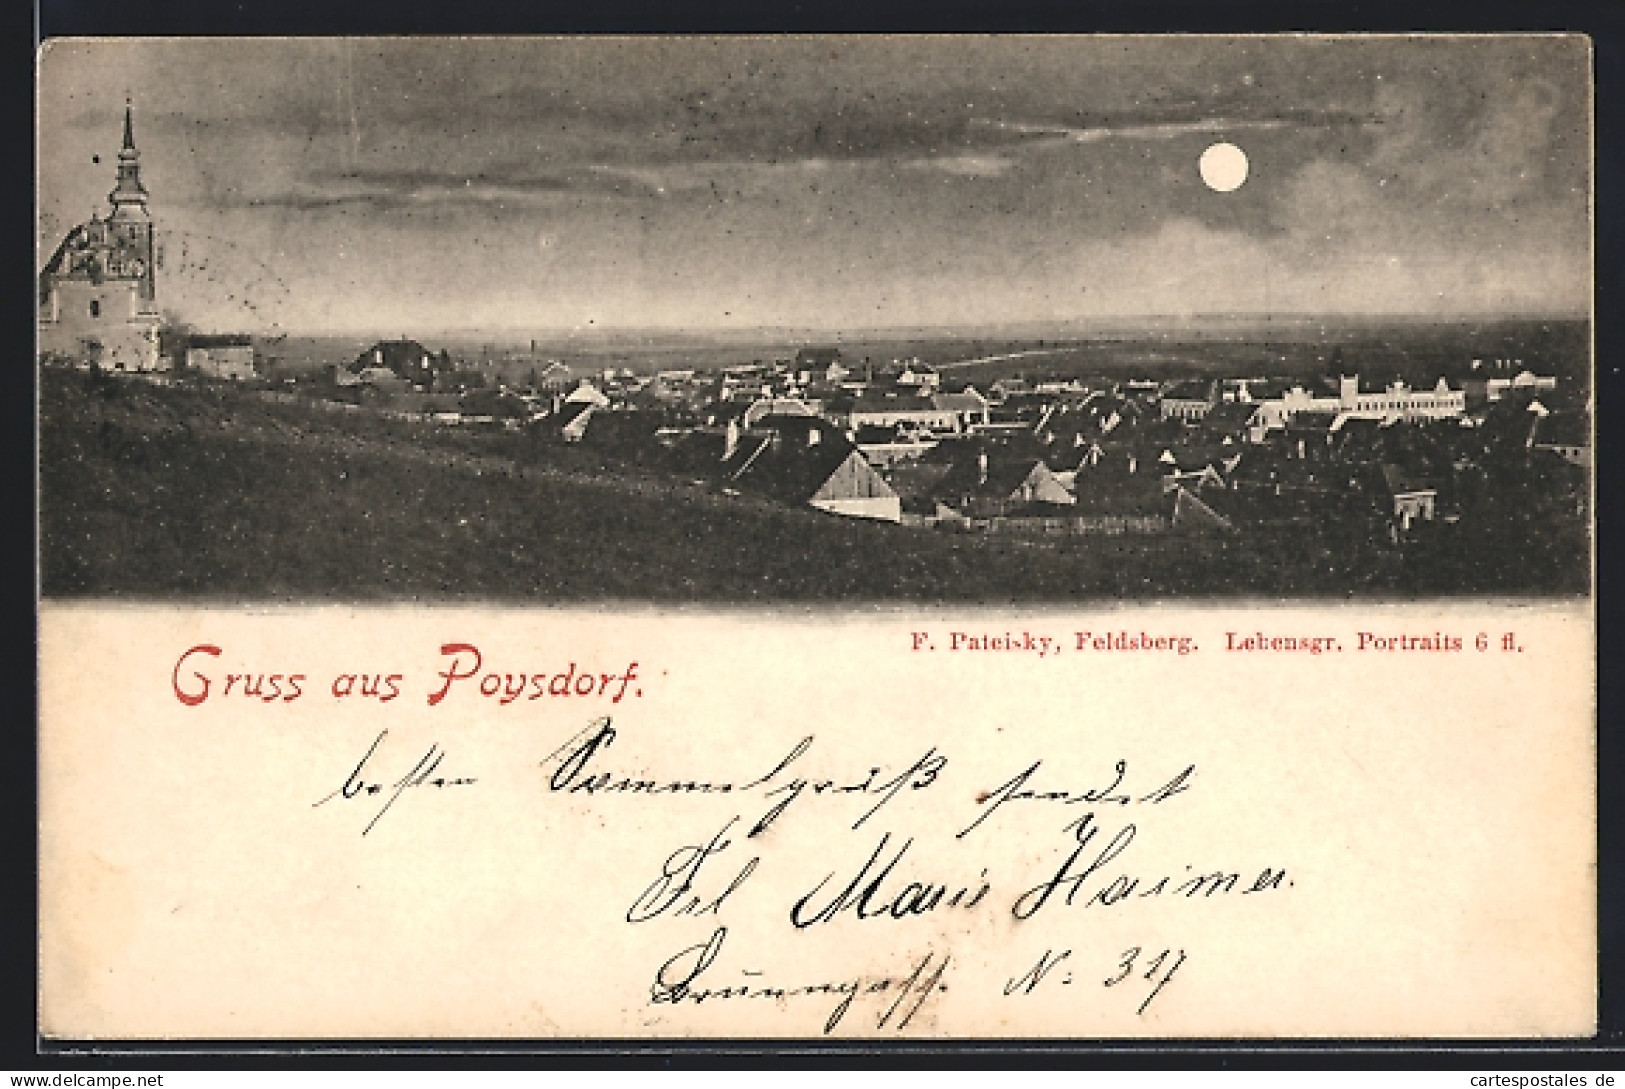 F. Pateisky, Feldsberg. Lebensgr. Portraits 6 fl.
Gruss aus Poysdorf.
besten Sammelgruß sendet
Frl Marie Haimer.
Brünngasse N: 317
delcampe.net
cartespostales de